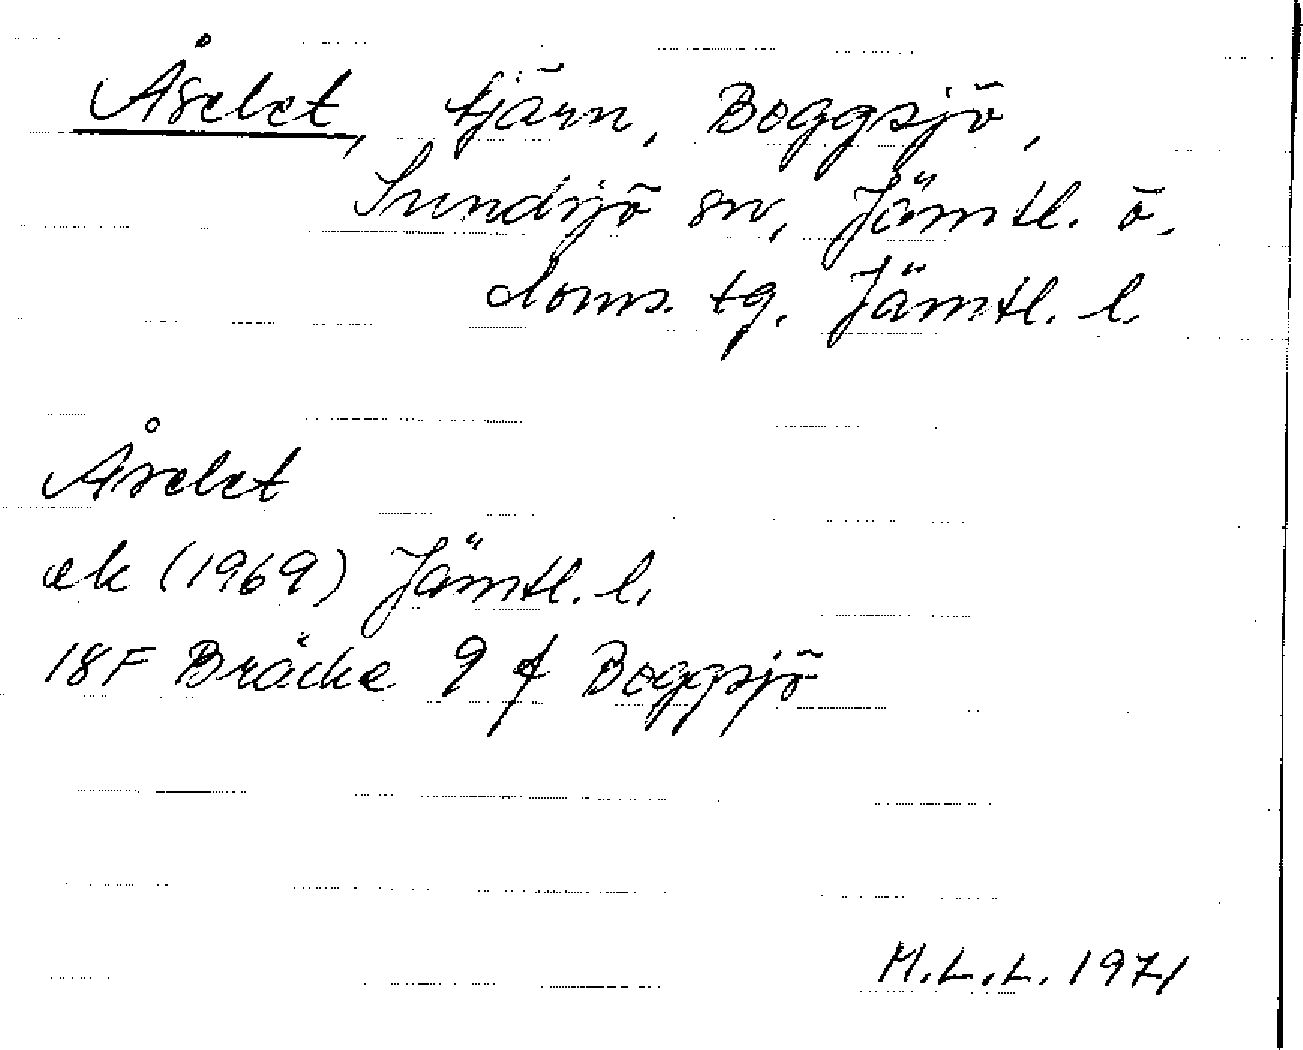 Åselet, tjärn, Boggsjö,
Sundsjö sn, Jämtl. ö.
doms. tg. Jämtl. l.
Åselet
ek (1969) Jämtl. l.
18F Bräcke 9 f Boggsjö
M.L.L. 1971